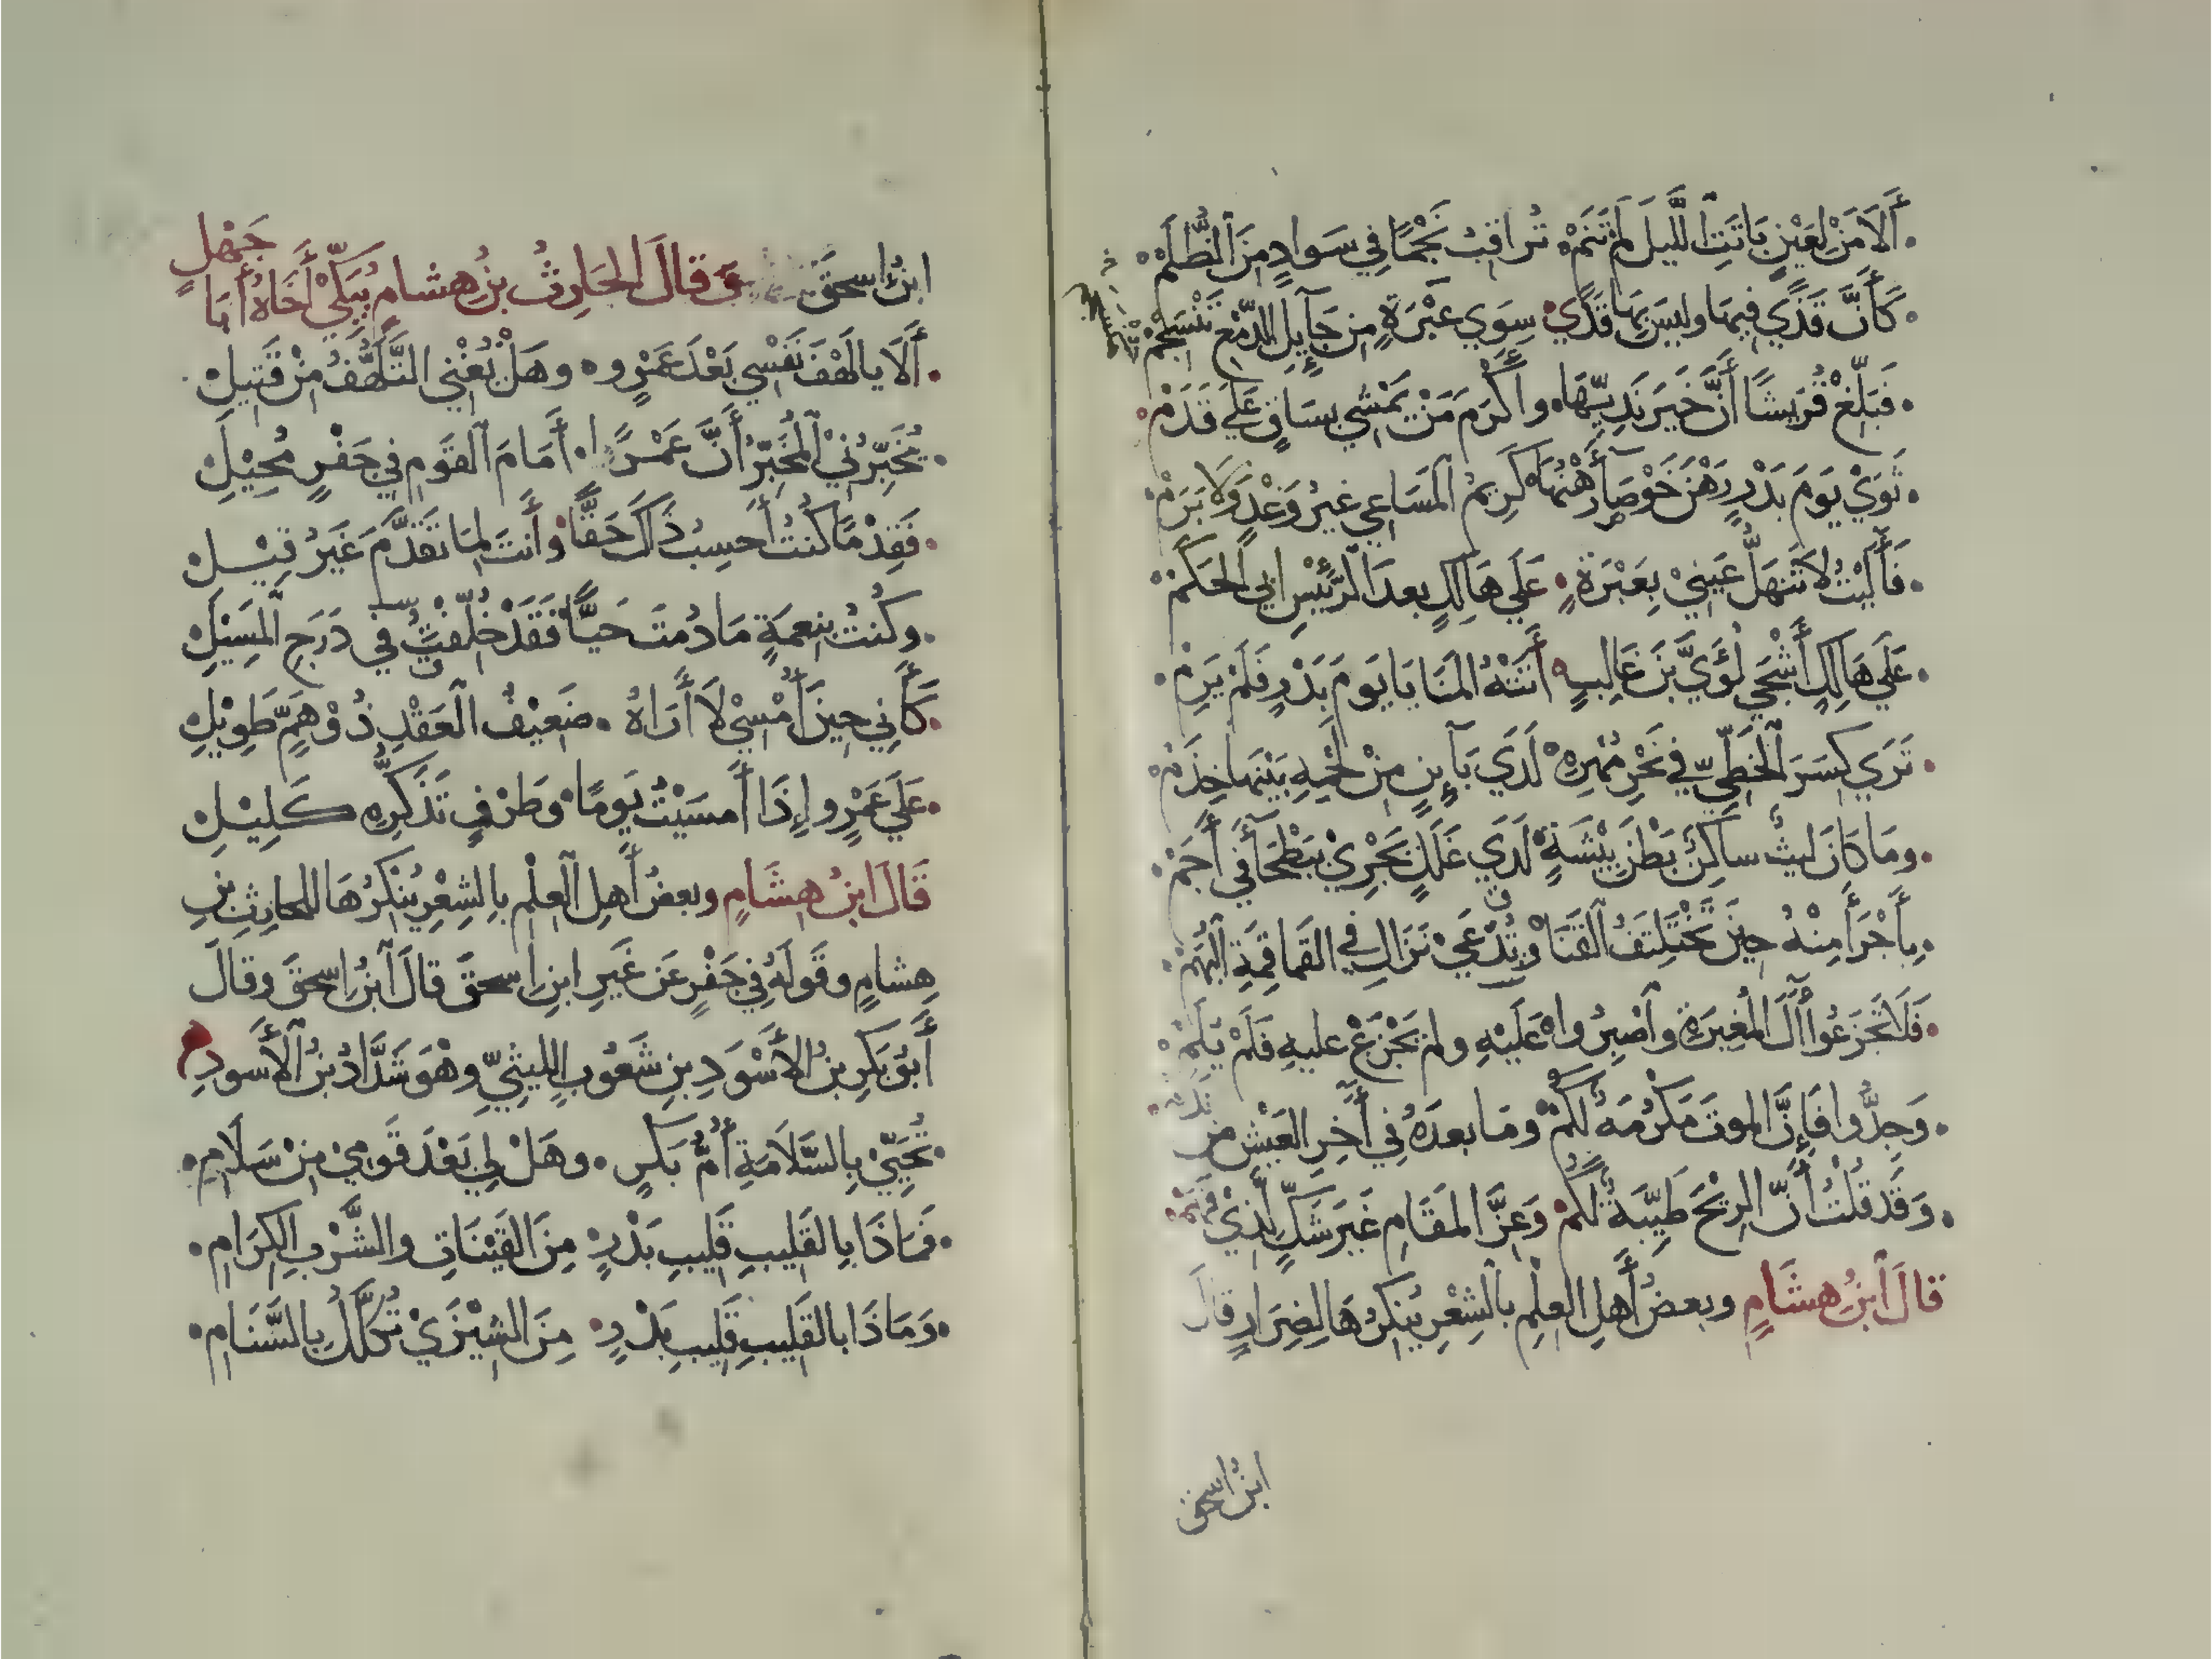 أَلَا مَنْ لِعَيْنٍ بَاتَتِ اللَّيلَ لَمْ تَنَمْ تُرَاقِبُ نَجْمًا فِي سَوَادٍ مِنَ الظُّلَمْ
كَأَنَّ قَذًى فِيهَا وليسَ بِهَا قَذًى سِوَى عَبْرَةٍ مِن جَآئِلِ الدَّمْعِ تَنْسَجِمْ
فَبَلِّغْ قُرَيشًا أَنَّ خَيرَ نَدِيِّهَا وأَكْرَمَ مَنْ يَمْشِي بِسَاقٍ عَلَى قَدَمْ
ثَوَى يَومَ بَدْرٍ رَهْنَ خَوْصَآءَ رَهْنُهَا كَرِيمُ المَسَاعِي غيرُ وَغْدٍ وَلَا بَرَمْ
فَآلَيْتُ لَا تَنْهَلُّ عَيْنِي بِعَبْرَةٍ عَلَى هَالِكٍ بعدَ الرَّئِيْسِ ابي الحَكَمْ
عَلَى هَالِكٍ أَشْجَى لُؤَيَّ بنَ غَالِبٍ أَتَتْهُ المَنَايَا يَومَ بَدْرٍ فَلَمْ يَرِمْ
تَرَى كِسَرَ الخَطِّيِّ فِي نَحْرِ مُهْرِهِ لَدَى بَآئِنٍ مِنْ لَحْمِهِ بَيْنَهَا خِذَمْ
ومَا كَانَ ليثٌ ساكِنٌ بَطْنَ بِيْشَةٍ لَدَى غَلَلٍ يَجْرِي بِبَطْحَآءَ فِي أَجَمْ
بِأَجْرَأَ مِنْهُ حِينَ تَخْتَلِفُ القَنَا وتُدْعَى نَزَالِ فِي القَمَاقِمَةِ البُهَمْ
فَلَا تَجْزَعُوا آلَ المُغِيرَةِ وَاصْبِرُوا عَلَيْهِ ومَنْ يَجْزَعْ عليهِ فَلَمْ يُلَمْ
وَجِدُّوا فَإِنَّ الموتَ مَكْرُمَةٌ لَكُمْ ومَا بعدَهُ فِي آخِرِ العَيْشِ مِن نَدَمْ
وَقَد قُلْتُ أَنَّ الرِّيْحَ طَيِّبَةٌ لَكُمْ وَعِزَّ المَقَامِ غَيرَ شَكٍّ لِذِي فَهَمْ
قالَ ابنُ هِشَامٍ وبعضُ أَهلِ العِلْمِ بالشِعْرِ يُنْكِرُهَا لِضِرَارٍ قالَ
ابنُ اسحق
ابنُ إسحقَ وَقالَ الحَارِثُ بنُ هِشامٍ يُبَكِّي أَخَاهُ أَبَا جَهْلٍ
أَلَا يالَهْفَ نَفْسِي بَعْدَ عَمْرٍو وهَلْ يُغْنِي التَّلَهُّفُ مِنْ قَتِيلِ
يُخَبِّرُنِي المُخَبِّرُ أَنَّ عَمْرًا أَمَامَ القَومِ فِي جَفْرٍ مُحِيْلِ
فَقِدْمًا كُنْتُ أَحسِبُ ذَاكَ حَقًّا وأَنتَ لِمَا تَقَدَّمَ غَيرُ فِيْلِ
وكُنْتُ بِنِعمَةٍ مَا دُمتَ حَيًّا فَقَدْ خُلِّفْتُ فِي دَرَجِ المَسِيْلِ
كَأَنِّي حِينَ أُمْسِي لَا أَرَاهُ ضَعِيْفُ العَقْدِ ذُوْ هَمٍّ طَوِيْلِ
عَلَى عَمْرٍو إِذَا أَمسَيْتُ يَومًا وَطَرْفٍ تَذَكُّرِهِ كَلِيْلِ
قَالَ ابنُ هِشَامٍ وبعضُ أَهلِ العِلْمِ بِالشِعْرِ يُنْكِرُهَا للحارثِ بنِ
هِشامٍ وقَولَهُ فِي جَفْرٍ عَن غَيرِ ابنِ اسحقَ قالَ ابنُ اسحقَ وقالَ
أَبُو بَكرِ بنُ الأَسْوَدِ بنِ شَعُوبٍ الليثيِّ وهْوَ شَدَّادُ بنُ الأَسْودِ
تُحَيِّي بِالسَّلَامَةِ أُمُّ بَكْرٍ وهَلْ لِي بَعْدَ قَومِي مِنْ سَلَامِ
فَمَاذَا بِالقَلِيبِ قَلِيبِ بَدْرٍ مِنَ القَيْنَاتِ والشَّرْبِ الكِرَامِ
وَمَاذَا بالقَلِيبِ قَلِيبِ بَدْرٍ مِنَ الشِيْزَى تُكَلَّلُ بِالسَّنَامِ